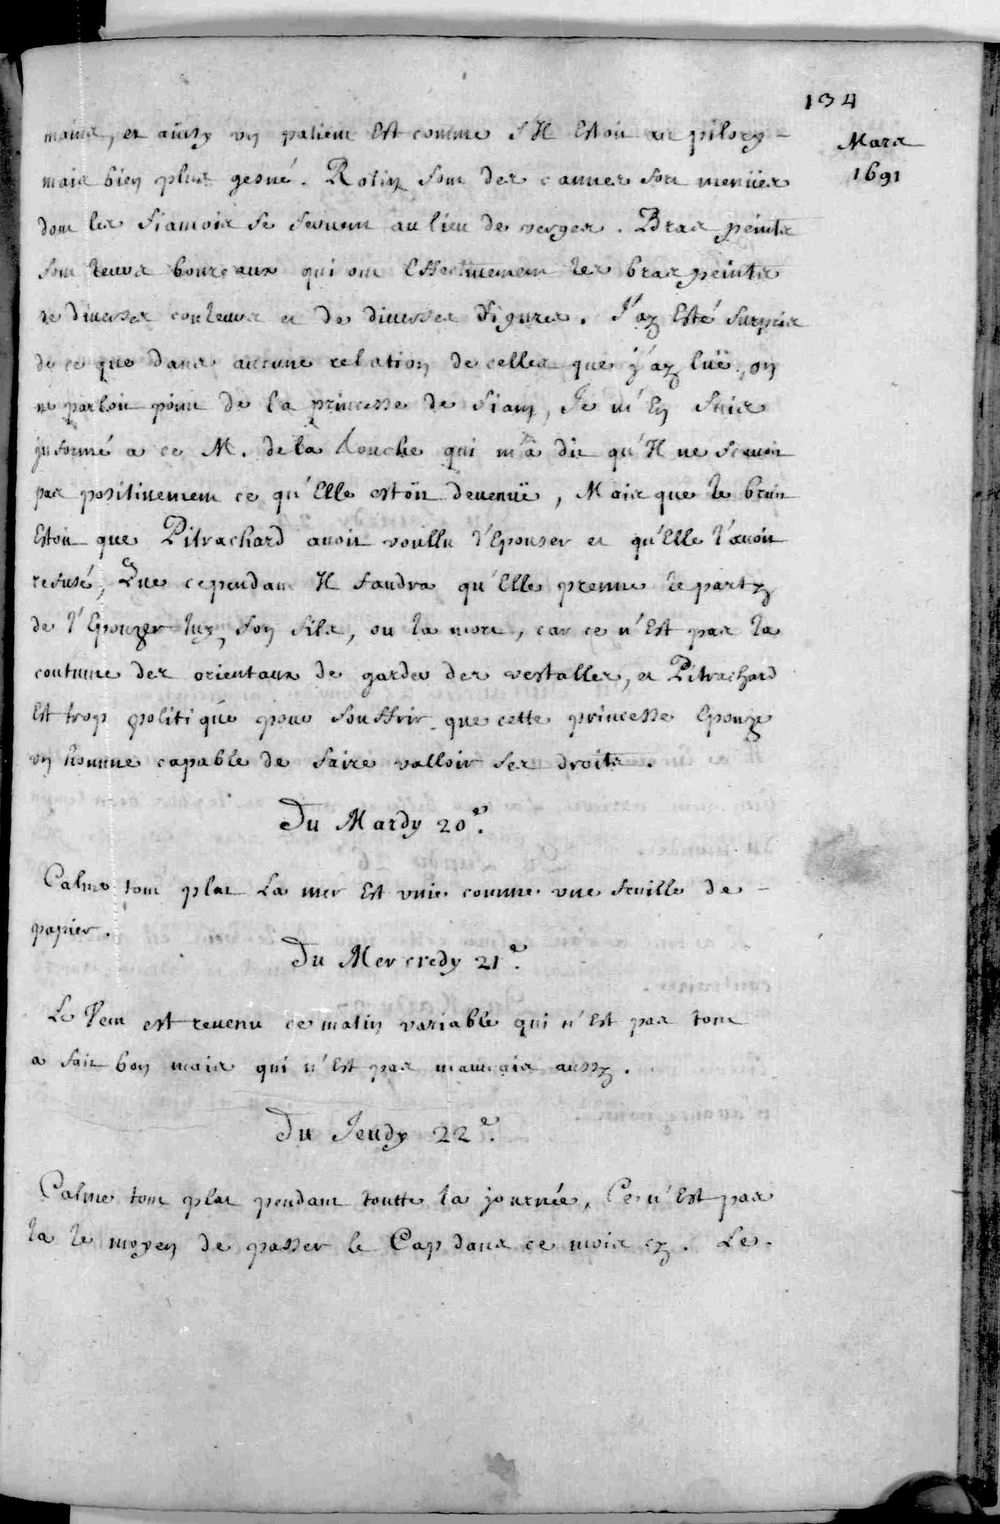 134
Mars
1691
mains, et ainsy un patient Est comme s'Il Estoit au pilory
mais bien plus gesné. Rotin sont des cannes fort menües
dont les siamois se servent au lieu de verges. Bras peints
sont leurs boureaux qui ont Effectivement les bras peints
de diverses couleurs et de diverses figures. J'ay Esté surpris
de ce que dans aucune relation de celles que j'ay luë, on
ne parloit point de la princesse de siam, Je m'En suis
informé a ce M. de la touche qui m'a dit qu'Il ne scavoit
pas positivement ce qu'Elle estoit devenuë, Mais que le bruit
Estoit que Pitrachard avoit voullu l'Epouser et qu'Elle l'avoit
refusé, Que cependant Il faudra qu'Elle prenne le party
de l'Epouzer luy, son fils, ou la mort, car ce n'Est pas la
coutume des orientaux de garder des vestalles, et Pitrachard
Est trop politique pour souffrir que cette princesse Epouze
un homme capable de faire valloir ses droits.
Du Mardy 20e.
Calme tout plat La mer Est unie comme une feuille de
papier.
Du Mercredy 21e.
Le Vent est revenu ce matin variable qui n'Est pas tout
a fait bon mais qui n'Est pas mauvais aussy.
Du Jeudy 22e.
Calme tout plat pendant toutte la journée, Ce n'Est pas
la le moyen de passer le Cap dans ce mois cy. Le